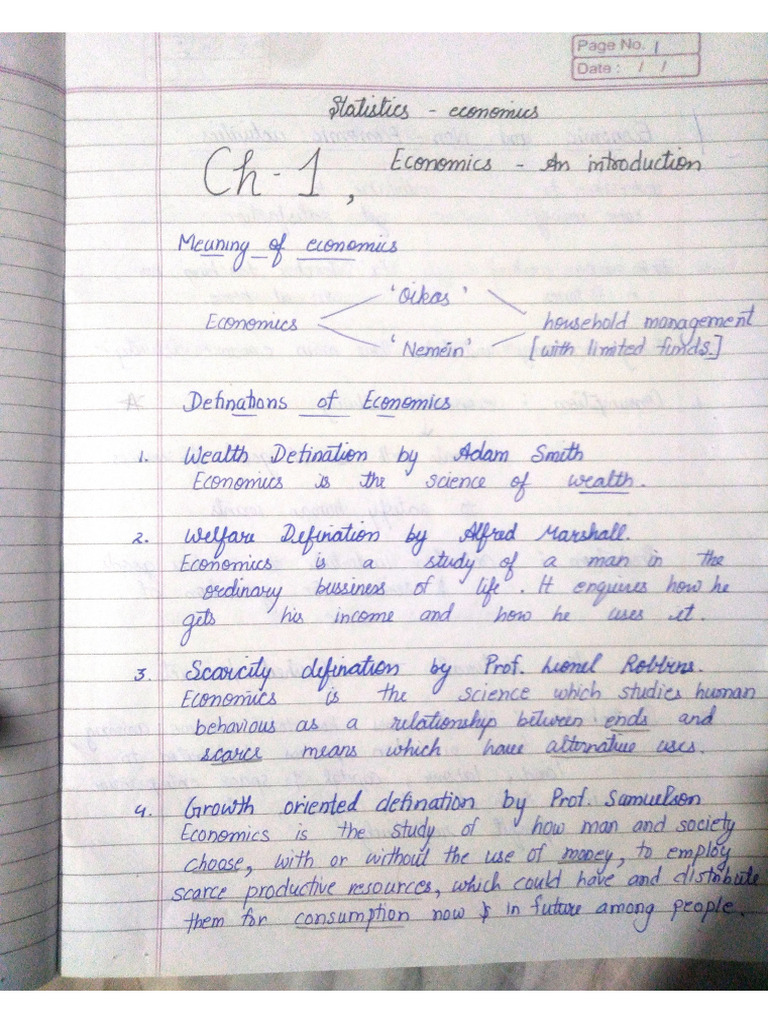 Page No. 1
Date : / /
Statistics - economics
Ch-1, Economics - An introduction
Meaning of economics
'Oikas'
Economics household management
'Nemein' [with limited funds.]
Definations of Economics
1. Wealth Defination by Adam Smith
Economics is the science of wealth.
2. Welfare Defination by Alfred Marshall.
Economics is a study of a man in the
ordinary bussiness of life. It enquires how he
gets his income and how he uses it.
3. Scarcity defination by Prof. Lionel Robbins.
Economics is the science which studies human
behavious as a relationship between ends and
scarce means which have alternative uses.
4. Growth oriented defination by Prof. Samuelson
Economics is the study of how man and society
choose, with or without the use of money, to employ
scarce productive resources, which could have and distribute
them for consumption now & in future among people.